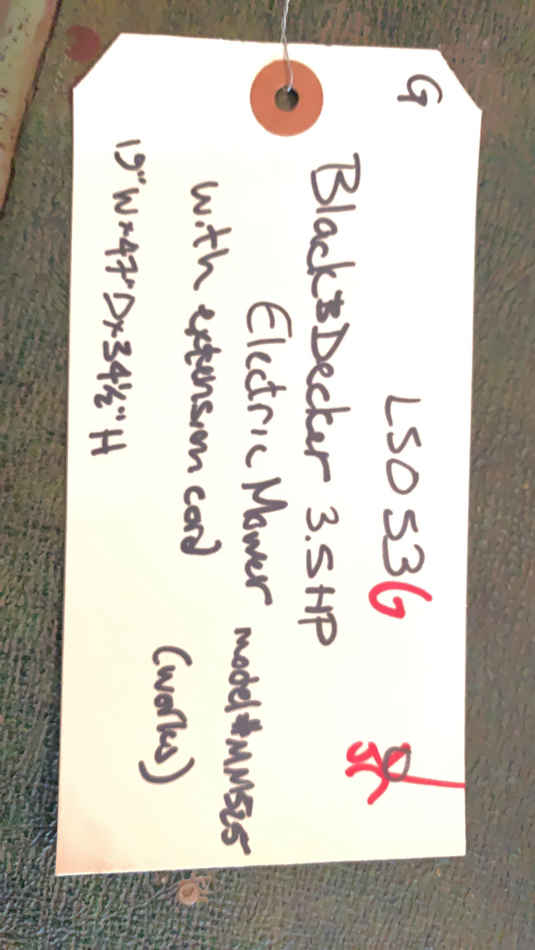 G
LSO 536
Black & Decker 3.5 HP
Electric Mower model # MM525
with extension cord (works)
19" W x 47" D x 34½" H